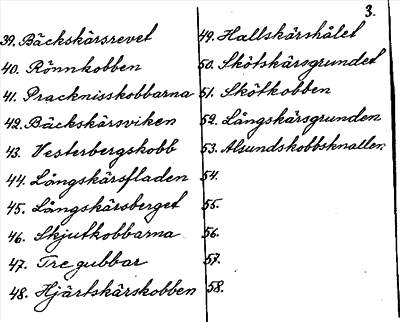 3.
39. Bäckskärsrevet
40. Rönnkobben
41. Pracknisskobbarna
42. Bäckskärsviken
43. Vesterbergskobb
44. Långskärsfladen
45. Långskärsberget
46. Skjutkobbarna
47. Tre gubbar
48. Hjärtskärskobben
49. Hallskärshålet
50. Skötskärsgrundet
51. Skötkobben
52. Långskärsgrunden
53. Alsundskobbsknallen
54.
55.
56.
57.
58.